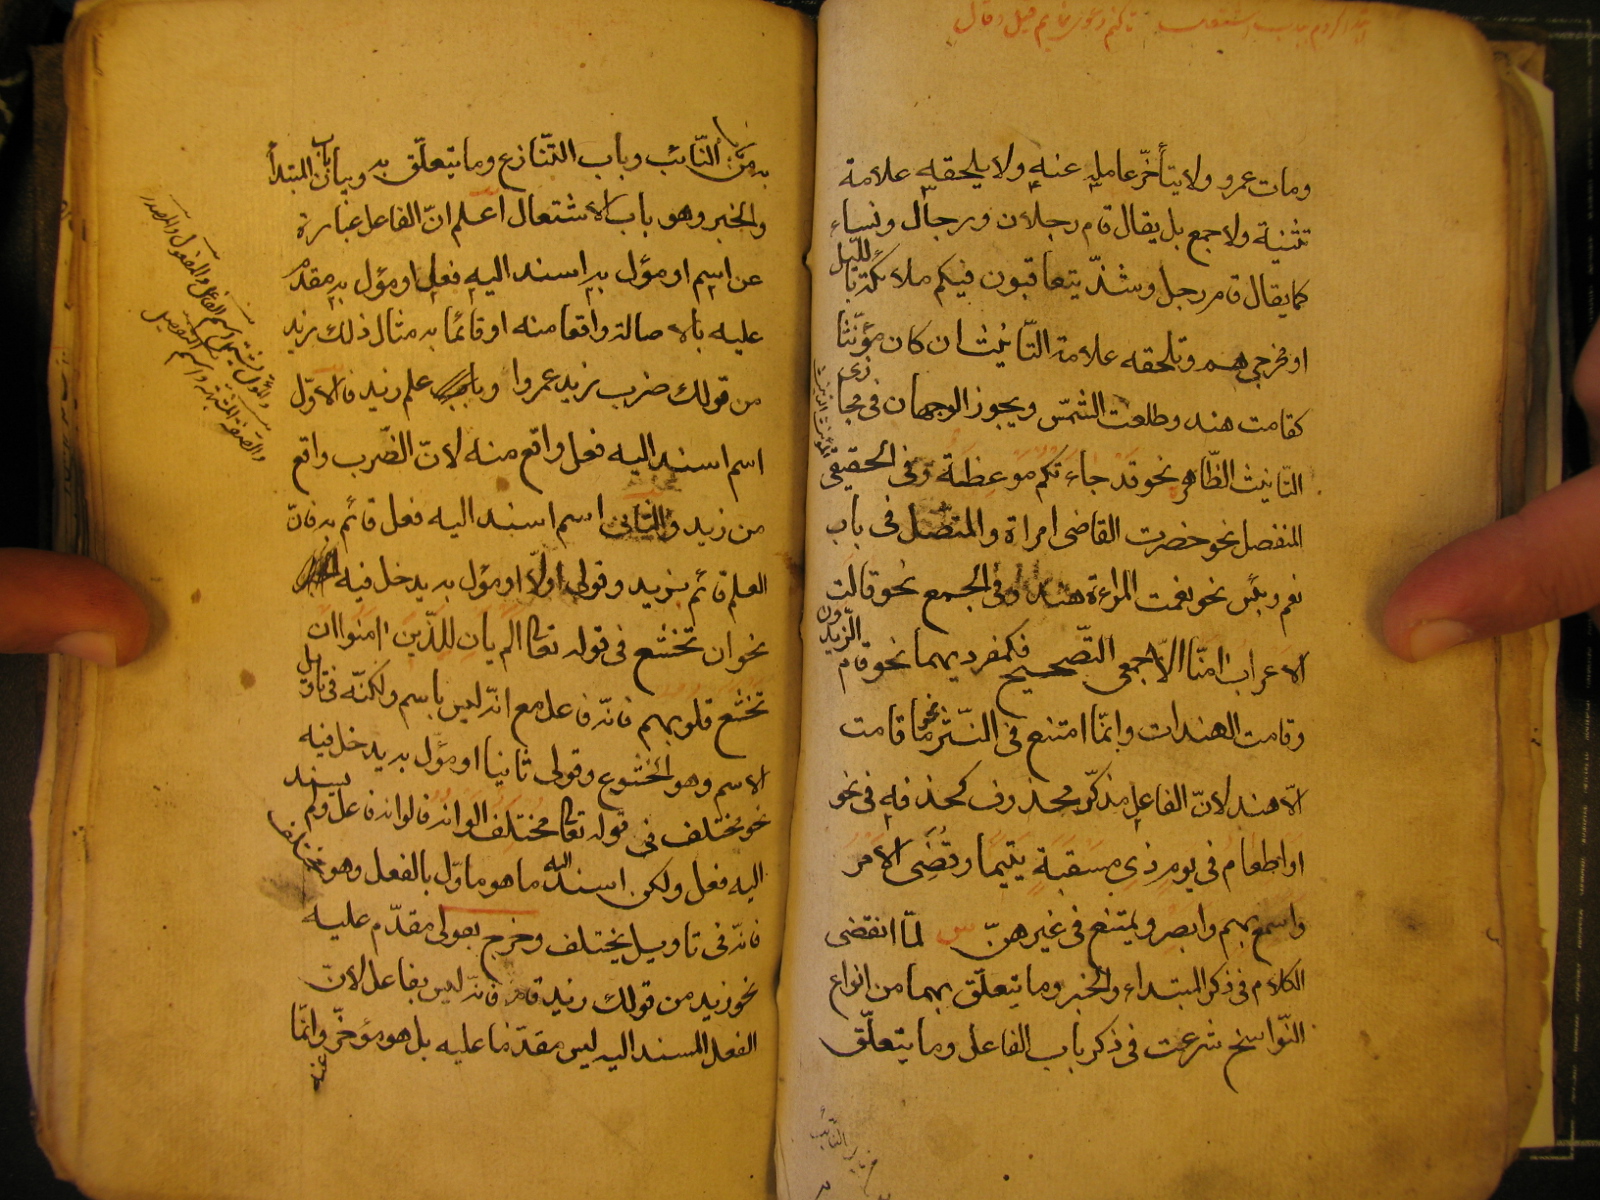 ومات عمرو ولا يتأخّر عامله عنه ولا يلحقه علامة
تثنية ولا جمع بل يقال قام رجلان ورجال ونساء
كما يقال قام رجل وشذّ يتعاقبون فيكم ملائكة بالليل
او مخرجى هم وتلحقه علامة التّانيث ان كان مؤنّثا
كقامت هند وطلعت الشمس ويجوز الوجهان فى مجازى
التّانيث الظّاهر نحو قد جاءتكم موعظة وفى الحقيقى
المنفصل نحو حضرت القاضى امراة والمتصّل فى باب
نعم وبئس نحو نعمت المراءة هند وفى الجمع نحو قالت
الاعراب امنّا الّا جمعى التّصحيح فكمفرديهما نحو قام الزّيدون
وقامت الهندات وانّما امتنع فى النّثر نحو ما قامت
الّا هند لانّ الفاعل مذكّر محذوف كحذفه فى نحو
او اطعام فى يوم ذى مسغبة يتيما وقضى الامر
واسمع بهم وابصر ويمتنع فى غيرهنّ س لمّا انقضى
الكلام فى ذكر المبتداء والخبر وما يتعلّق بهما من انواع
النّواسخ شرعت فى ذكر باب الفاعل وما يتعلّق
به من النّائب وباب التّنازع وما يتعلّق به وبيان باب المبتدأ
والخبر وهو باب الاشتغال اعلم انّ الفاعل عبارة
عن اسم او مؤل به اسند اليه فعل او مؤل به مقدّم
عليه بالاصالة واقعا منه او قائما به مثال ذلك زيد
من قولك ضرب زيد عمروا و علم زيد فالاوّل
اسم اسند اليه فعل واقع منه لانّ الضّرب واقع
من زيد والثّانى اسم اسند اليه فعل قائم به فانّ
العلم قائم بزيد وقولى اولّا او مؤل به يدخل فيه
نحو ان تخشع فى قوله تعا الم يان للّذين امنوا ان
تخشع قلوبهم فانّه فاعل مع انّه ليس باسم ولكنّه فى تاويل
الاسم وهو الخشوع وقولى ثانيا او مؤل به يدخل فيه
نحو مختلف فى قوله تعا مختلف الوانه فالوانه فاعل ولم يسند
اليه فعل ولكن اسند اليه ما هو ماوّل بالفعل وهو مختلف
فانّه فى تاويل يختلف وخرج بقولى مقدّم عليه
نحو زيد من قولك زيد قام فانّه ليس بفاعل لانّ
الفعل المسند اليه ليس مقدّما عليه بل هو مؤخّر عنه وانّما
والمؤل يشتم اسم الفاعل والمفعول والمصدر
والصفة المشبّهة واسم التفضيل